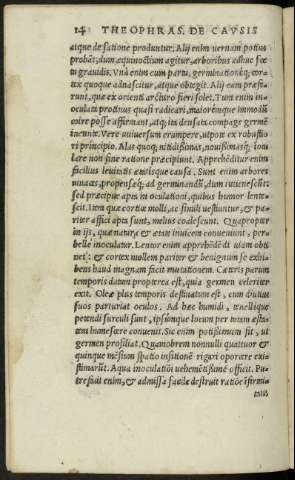 14 THEOPHRAS. DE CAVSIS
atque de satione produntur. Alij enim vernam potius
probãt, dum æquinoctium agitur, arboribus adhuc fœ-
tu grauidis. Vnà enim cum partu, germinationéq; cor-
tex quoque adnascitur, atque obtegit. Alij eam præfe-
runt, quæ ex orienti arcturo fieri solet. Tum enim ino-
culata protinus quasi radicari, maioréque immolli
coire posse affirmant, atq; ita densata compage germē
incunte. Vere vniuersum erumpere, utpote ex robustio
ri principio. Alas quoq; nitidissimas, nouissimasq; inocu
lare non sine ratione præcipiunt. Apprehēditur enim
facilius leuitatis ætatisque causa. Sunt enim arbores
viuaces, propensæq; ad germinandū, dum iuuenescūt:
sed præcipue aptæ in oculationi, quibus humor lente-
scit. Item quæ cortice molli, ac simili vestiuntur, & pa-
riter affici apta sunt, melius coalescunt. Quapropter
in ijs, quæ natura & ætate inuicem conueniunt, per-
belle inoculatur. Lentor enim apprehēdēdi uiam obti
net: & cortex mollem pariter & benignum se exhi-
bens haud magnam facit mutationem. Cæteris parum
temporis datum propterea est, quia gexmen celeriter
exit. Oleæ plus temporis destinatum est, cum diutius
suos parturiat oculos. Ad hæc humidi, tenellique
petendi surculi sunt, ipsúmque locum per totam æsta-
tem humescere conuenit. Sic enim potissimum fit, ut
germen prosiliat. Quamobrem nonnulli quatuor &
quinque mēsium spatio insitionē rigari oporere exi-
stimarūt. Aqua inoculatiōi uehemētissimè officit. Pu-
trescit enim, & admissa facilè destruit ratiōe īfirmi